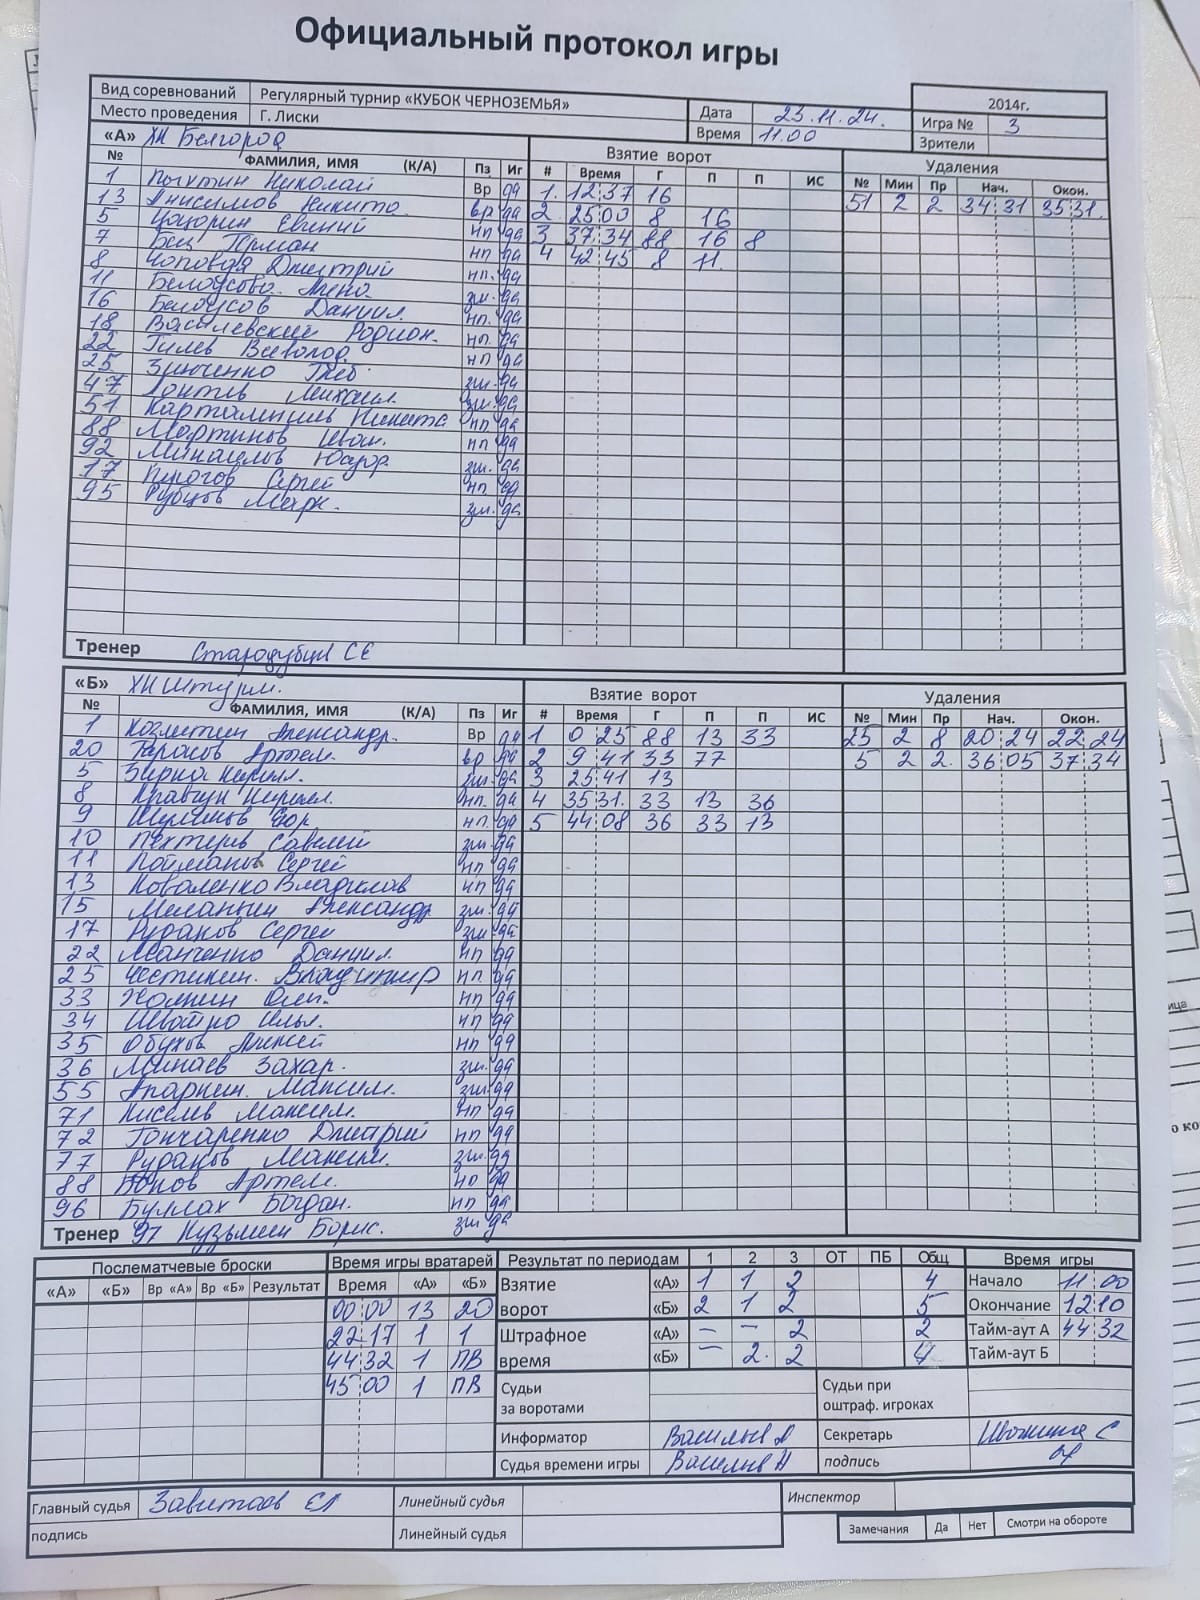 Официальный протокол игры
Вид соревнований Регулярный турнир «КУБОК ЧЕРНОЗЕМЬЯ» 2014г.
Место проведения Г. Лиски Дата 23.11.24. Игра № 3
Время 11.00 Зрители
«А» ХК Белгород Взятие ворот Удаления
№ ФАМИЛИЯ, ИМЯ (К/А) Пз Иг # Время Г П П ИС № Мин Пр Нач. Окон.
1 Николай Вр да 1. 12:37 16 51 2 2 34 31 35 31.
13 Анисимов Никита вр да 2 25 00 8 16
5 Евгений нп да 3 37 34 88 16 8
7 нп да 4 42 45 8 11.
8 Дмитрий нп. да
11 Белоусова зщ. да
16 Белоусов Даниил. нп. да
18 Василевский Родион. нп. да
22 Гилев Всеволод нп да
25 Зинченко Глеб. зщ. да
47 Михаил зщ. да
51 Никита нп да
88 Мартинов Иван. нп да
92 зщ. да
17 Пирогов Сергей нп да
95 Рубцов Марк. зщ. да
Тренер Стародубцев СЕ
«Б» ХК Штурм. Взятие ворот Удаления
№ ФАМИЛИЯ, ИМЯ (К/А) Пз Иг # Время Г П П ИС № Мин Пр Нач. Окон.
1 Александр. Вр да 1 0 25 88 13 33 25 2 8 20 24 22 24
20 Тарасов Артем. вр да 2 9 41 33 77 5 2 2. 36 05 37 34
5 зщ. да 3 25 41 13
8 Кравчун Кирилл. нп. да 4 35 31. 33 13 36
9 нп. да 5 44 08 36 33 13
10 Пехтерев Савелий зщ. да
11 Пойманов Сергей нп да
13 Коваленко Владислав нп да
15 Александр зщ. да
17 Рудаков Сергей зщ да
22 Манченко Даниил. нп да
25 Честикин. Владимир нп. да
33 нп да
34 Илья. нп да
35 Обухов Алексей нп да
36 Минаев Захар. зщ. да
55 Апаркин. Максим. зщ. да
71 Киселев Максим. нп да
72 Гончаренко Дмитрий нп да
77 Рудаков Максим. зщ. да
88 Попов Артем. нп да
96 Буллах Богдан. нп да
Тренер 97 Кузьмин Борис. зщ да
Послематчевые броски Время игры вратарей Результат по периодам 1 2 3 ОТ ПБ Общ Время игры
«А» «Б» Вр «А» Вр «Б» Результат Время «А» «Б» Взятие «А» 1 1 2 4 Начало 11 00
00:00 13 20 ворот «Б» 2 1 2 5 Окончание 12 10
22 17 1 1 Штрафное «А» – – 2 2 Тайм-аут А 44 32
44 32 1 ПВ время «Б» – 2. 2 4 Тайм-аут Б
45 00 1 ПВ Судьи за воротами Судьи при оштраф. игроках
Информатор Васильев А Секретарь С
Судья времени игры Васильев Н подпись
Главный судья Завитаев ЕЛ Линейный судья Инспектор
подпись Линейный судья Замечания Да Нет Смотри на обороте